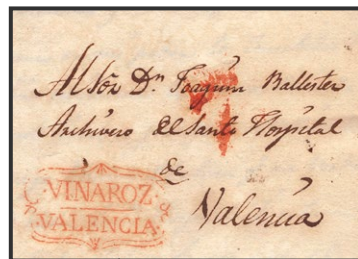 Al Sôr Dn Joaquin Ballester
Archivero del Santo Hospital
de
Valencia
VINAROZ
VALENCIA